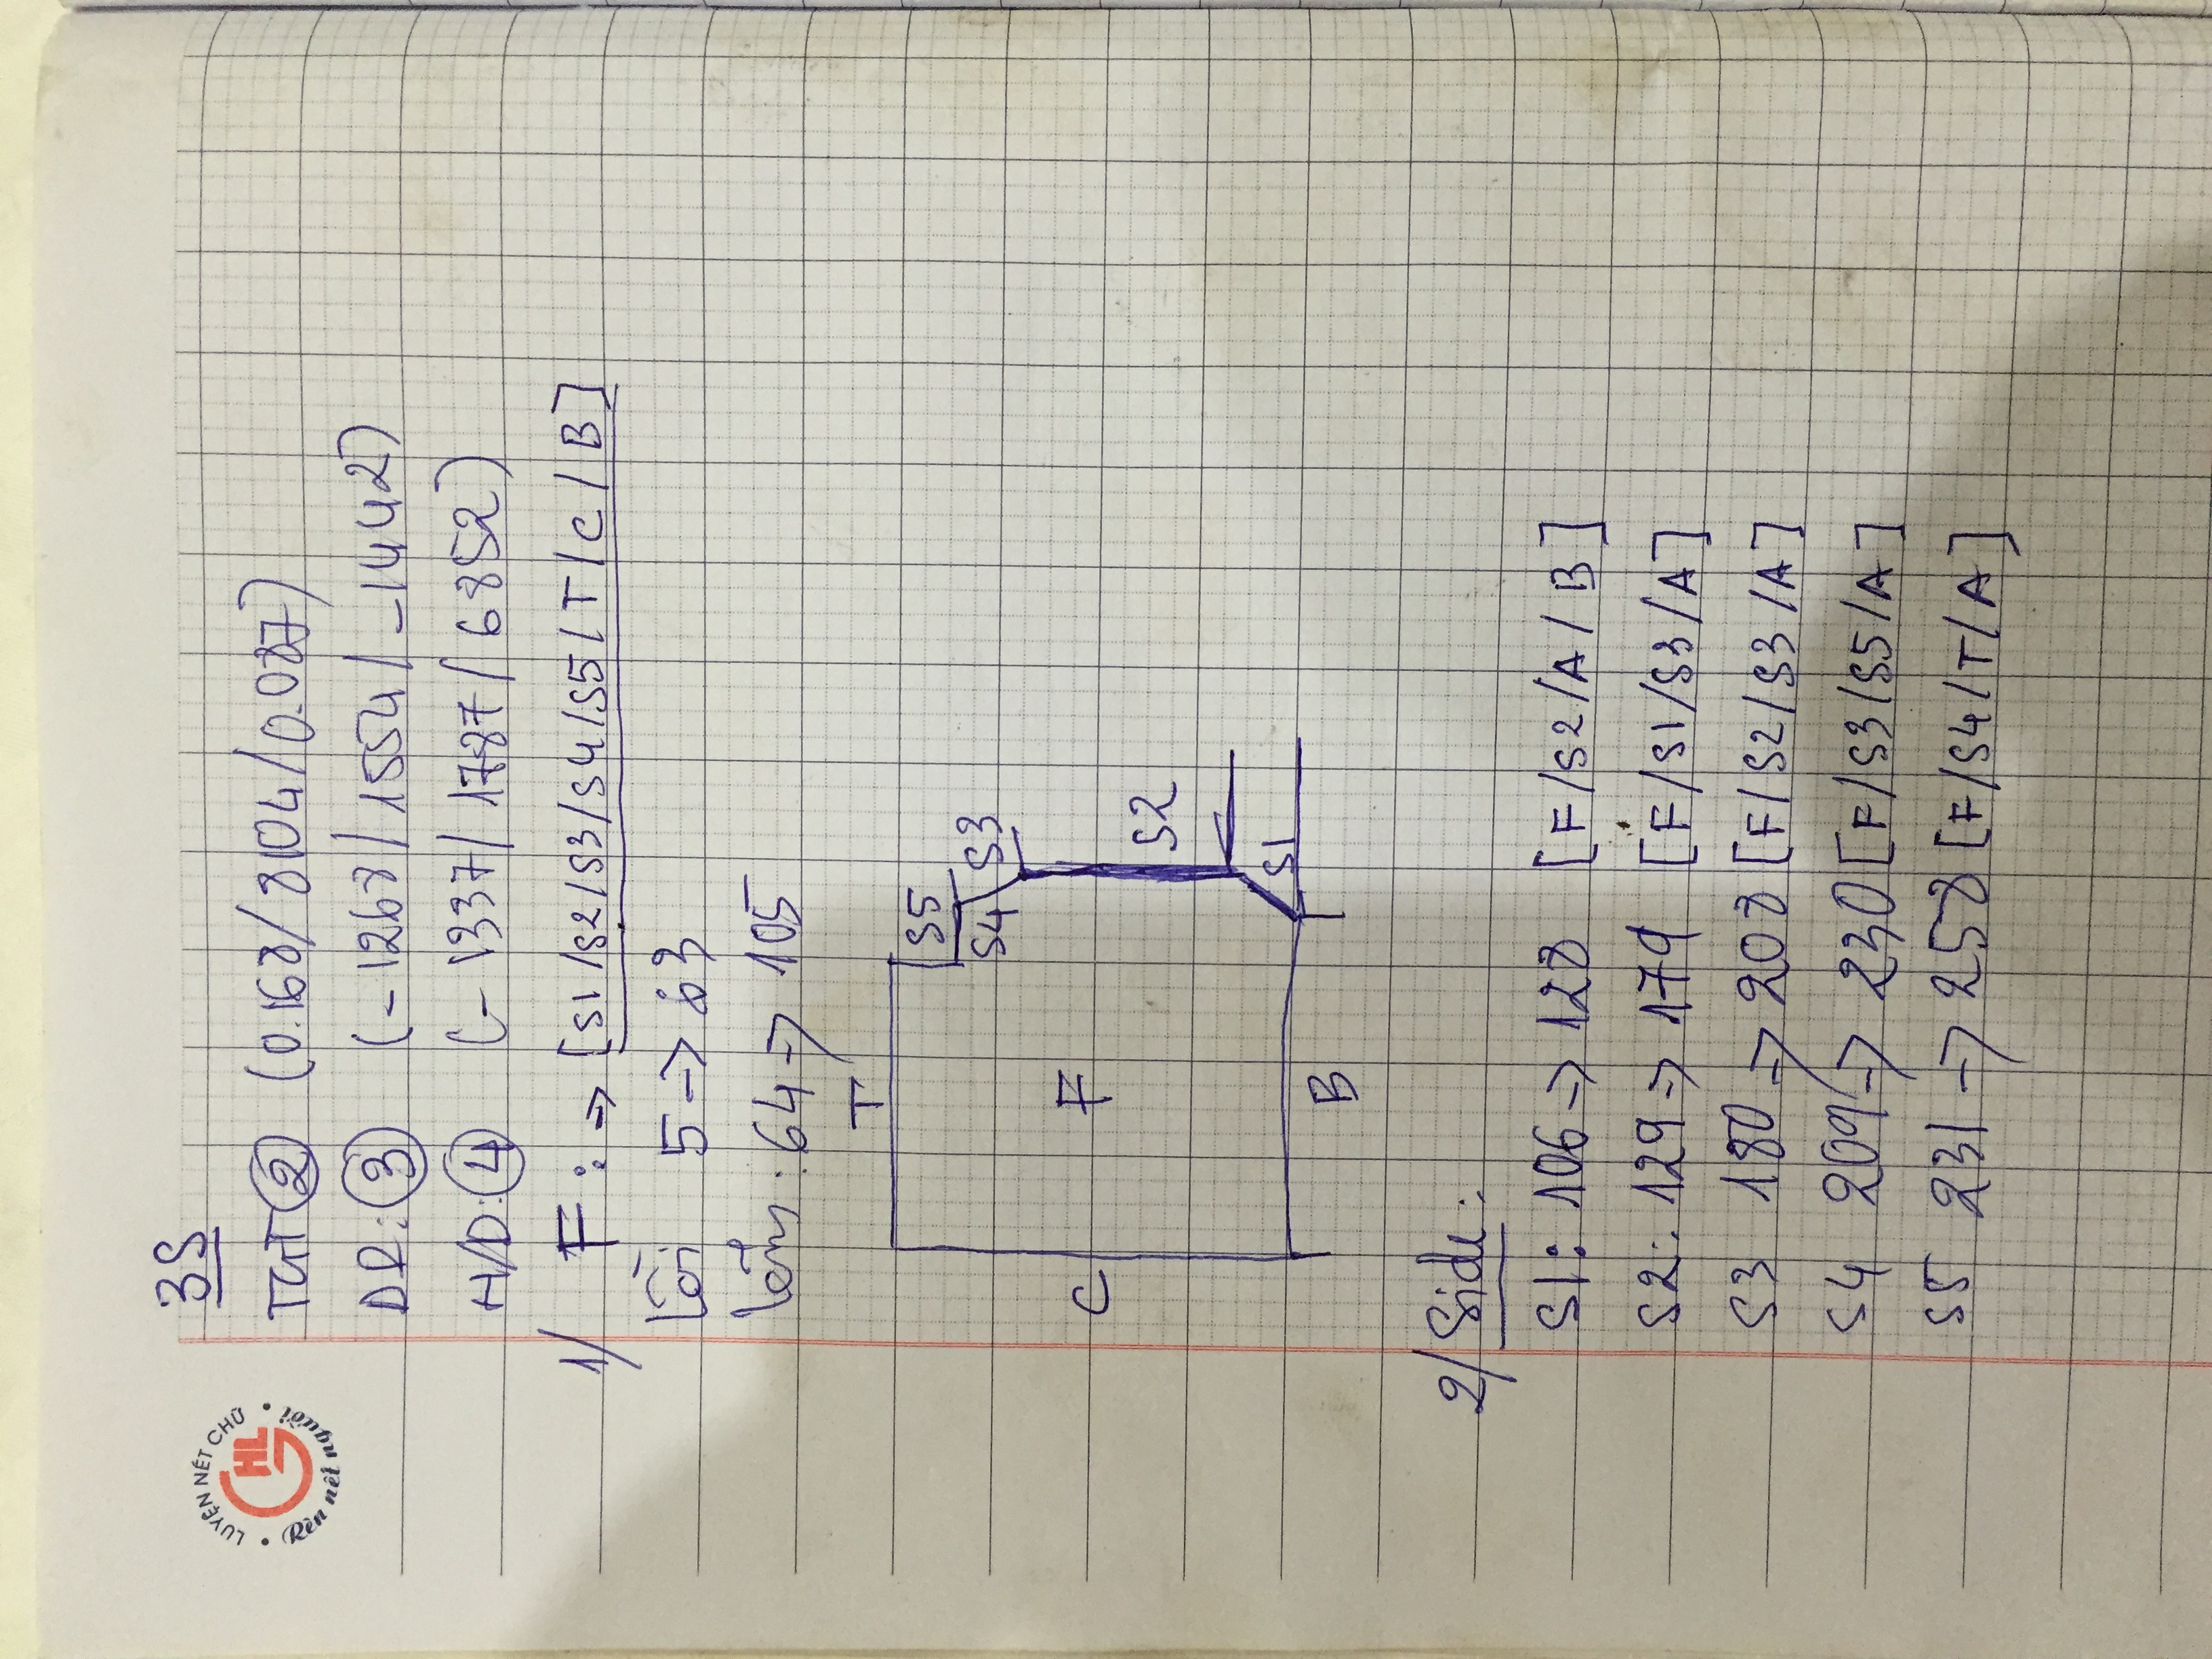 LUYỆN NÉT CHỮ
GHL
Rèn nết người
3S
TGT ② (0.168/8104/0.087)
DR: ③ (-1268/1554/-1442)
H/D: ④ (-1337/1787/6852)
1/ F: -> [S1/S2/S3/S4/S5/T/C/B]
lồi 5 -> 63
lõm: 64 -> 105
T
S5
S4 S3
C F
S2
S1
B
2/ Side:
S1: 106 -> 128 [F/S2/A/B]
S2: 129 -> 179 [F/S1/S3/A]
S3 180 -> 208 [F/S2/S3/A]
S4 209 -> 230 [F/S3/S5/A]
S5 231 -> 258 [F/S4/T/A]